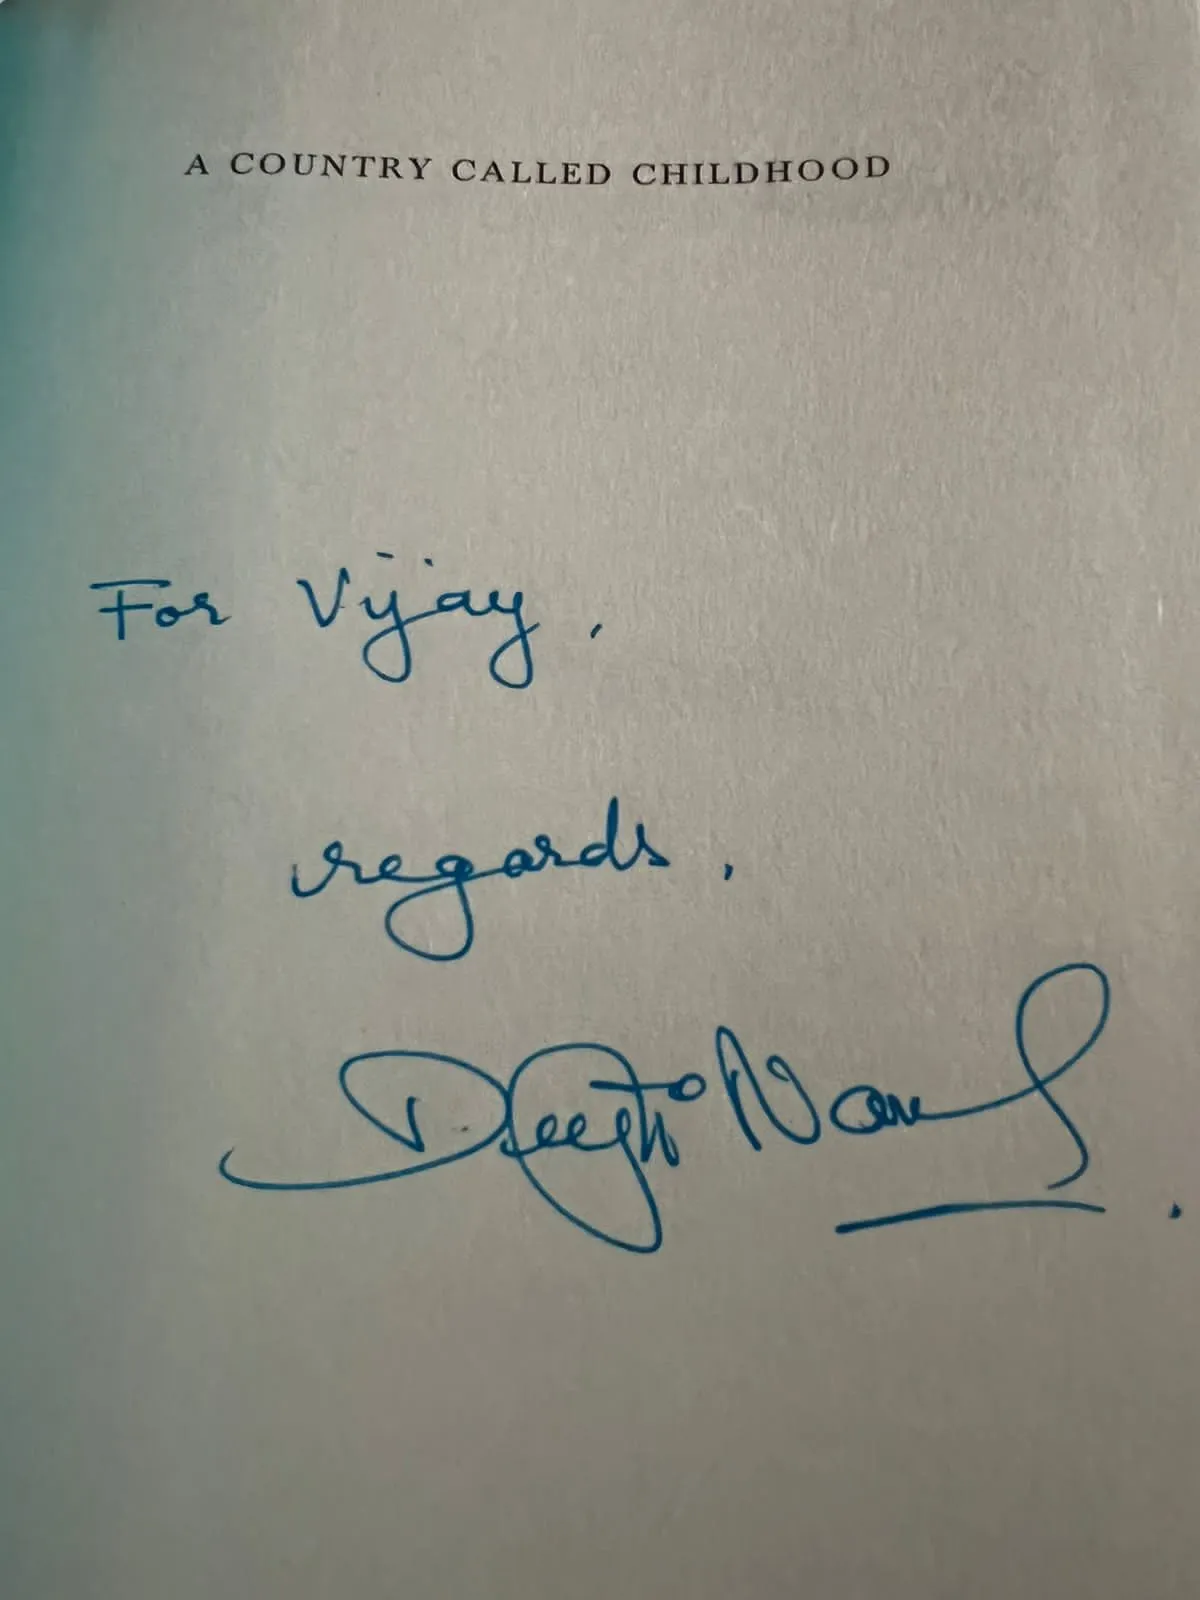 A COUNTRY CALLED CHILDHOOD
For Vijay,
regards,
Deepti Naval